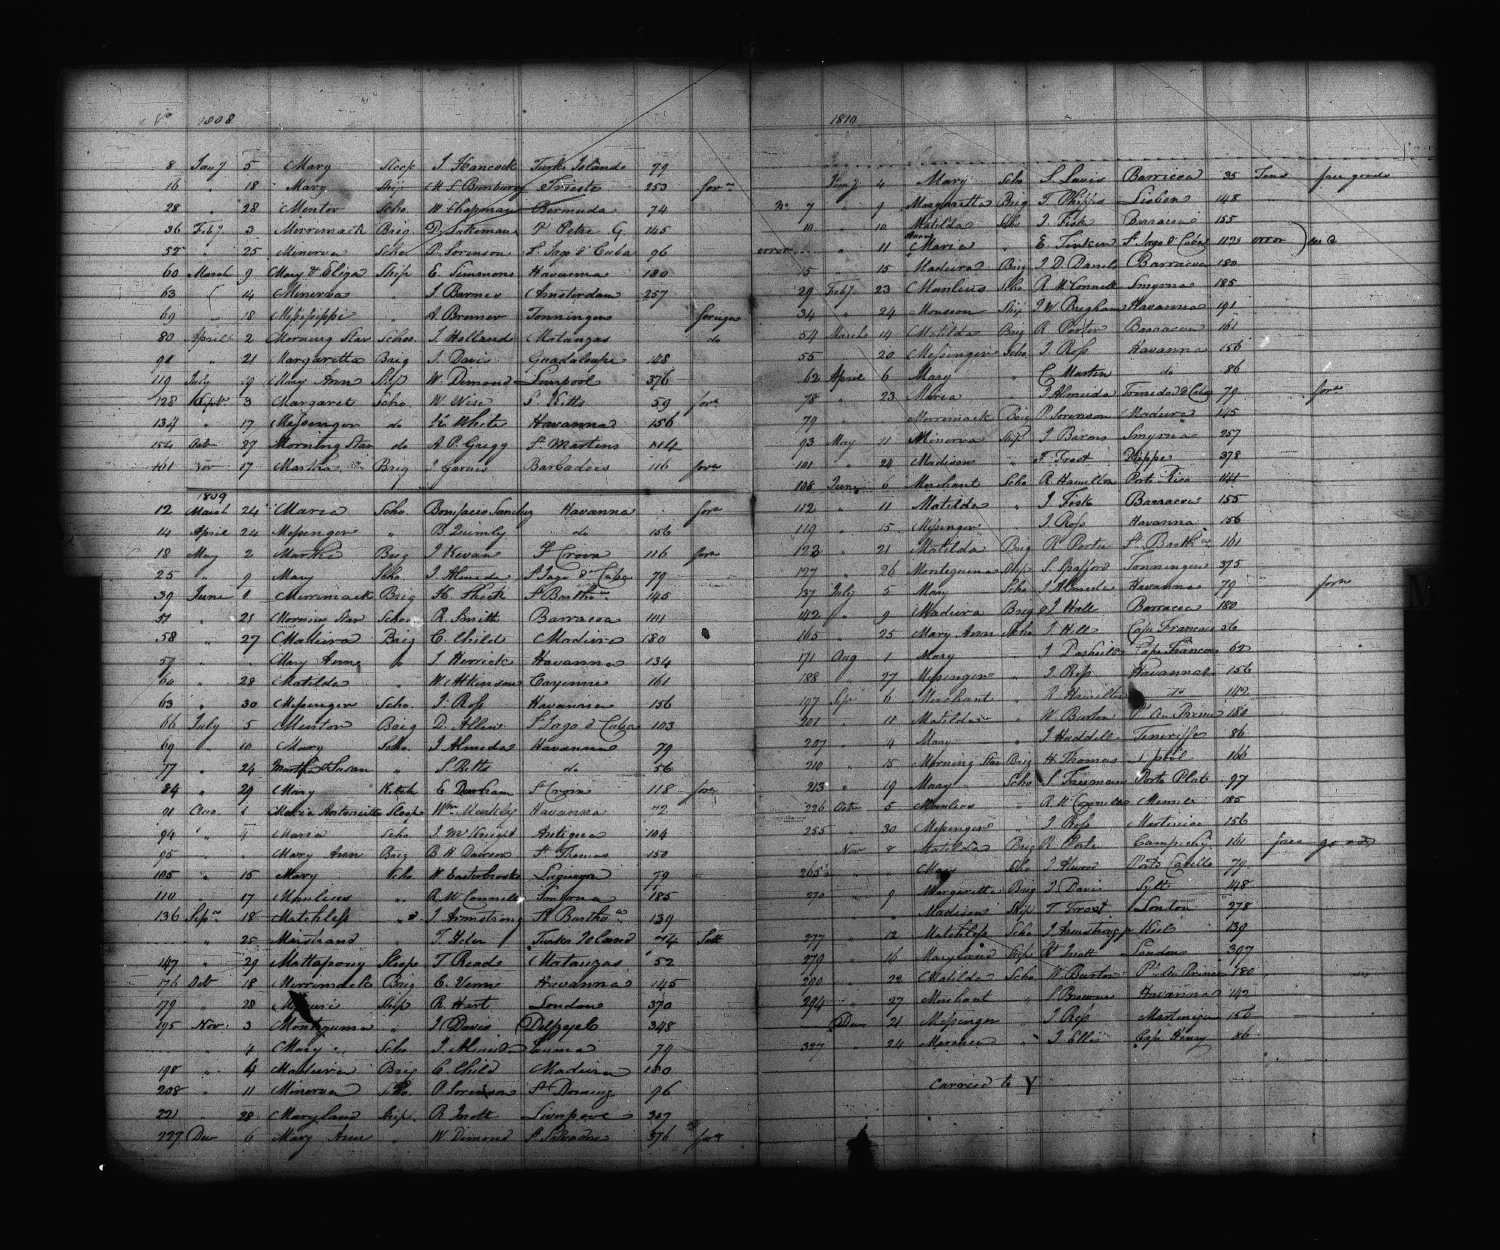 No 1808
8 Jany 5 Mary Sloop J. Hancock Turks Islands 79
16 " 18 Mary Ship H S Bunbury Trieste 253 forn
28 " 28 Mentor Scho. W Chapman Bermuda 74
36 Feby 3 Merrimack Brig 145
52 " 25 Minerva Scho P. Sorenson St Jago d Cuba 96
60 March 9 Mary & Eliza Ship E. Simmons Havanna 180
63 14 Minerva " J. Barnes Amsterdam 257
69 " 18 Missisippi " A Bremer Tonningen foreign
80 April 2 Morning Star Schor J. Holland Matanzas do
98 " 21 Margaretta Brig J. Davis Guadaloupe 148
119 July 19 Mary Ann Ship W. Dimond Liverpool 376
128 Septr 3 Margaret Scho W. Wise St Kitts 59 forn
134 " 17 Messenger do White Havanna 156
154 Oct 27 Morning Star do A. P. Gregg St Martins 114
161 Nov 17 Martha Brig J Garnis Barbadoes 116 forn
1809
12 March 24 Maria Scho Bonifacio Sanchez Havanna forn
14 April 24 Messenger " B Quimby do 156
18 May 2 Martha Brig J Kevan St Croix 116 forn
25 " 9 Mary Scho. J. Almeda St Jago d Cuba 79
39 June 1 Merrimack Brig St Bartho 145
51 " 25 Morning Star Schor R. Smith Barracoa 101
58 " 27 Madeira Brig C. Child Madeira 180
59 " " Mary Anne J Herrick Havanna 134
60 " 28 Matilda " W. Atkinson Cayenne 161
63 " 30 Messenger Scho. J. Ross Havanna 156
66 July 5 Mentor Brig D. Allen St Jago d Cuba 103
69 " 10 Mary Scho. J Almeda Havanna 79
77 " 24 Martha & Susan " S. Pitts do 56
84 " 29 Mary Ketch C Durham St Croix 118 forn
91 Aug. 1 Maria Antoinette Sloop Wm Markley Havanna 72
94 " 4 Maria Scho. J McKnight Antigua 104
95 " " Mary Ann Brig B H Dawson St Thomas 150
105 " 15 Mary Scho W Easterbrooke Laguayra 79
110 " 17 Manlius " R McConnell Smyrna 185
136 Sepr 18 Matchless " J Armstrong St Bartho 139
" 25 Maistrand " T. Hiler Turks Island 74 Salt
147 " 29 Mattapony Sloop T. Reads Matanzas 52
176 Oct 18 Merrimack Brig C. Venn Havanna 145
179 " 28 Missouri Ship R. Hart London 370
195 Nov. 3 Montezuma " J Davis 348
" 4 Mary Scho. J. Almeda 79
198 " 4 Madeira Brig C. Child Madeira 180
208 " 11 Minerva Scho. P Sorenson St Domingo 96
221 " 28 Maryland Ship. R Inott Liverpool 397
227 Dec 6 Mary Ann " W Dimond St Salvadore 376 forn
1810
Jany 4 Mary Scho S Lewis Barricoa 35 Tons free goods
No 7 " 9 Margaretta Brig T. Phipps Lisbon 148
10 " 10 Matilda Scho J. Fisk Barracoa 155
error " 11 Maria " E. Tinker St Jago d Cuba 112 error
15 " 15 Madeira Brig J. D. Daniels Barracoa 180
29 Feby 23 Manlius Scho R McConnell Smyrna 185
34 " 24 Monsoon Ship J W Brigham Havanna 191
54 March 14 Matilda Brig R Porter Barracoa 161
55 " 20 Messenger Scho J. Ross Havanna 156
62 April 6 Mary " C Martin do 86
78 " 23 Maria J Almeida Trinidad d Cuba 79 forn
79 " Merrimack Brig P Sorenson Madeira 145
93 May 11 Minerva Ship J Barns Smyrna 257
101 " 24 Madison " T. Frost Dieppe 378
108 June 6 Merchant Scho R Hamilton Porto Rico 144
112 " 11 Matilda " J Fisk Barracoa 155
119 " 15 Messenger J. Ross Havanna 156
123 " 21 Matilda Brig R Porter St Bartho 161
127 " 26 Montezuma Ship S. Spafford Tonningen 375
137 July 5 Mary Scho J Almeda Havanna 79 forn
142 " 9 Madeira Brig J Hall Barracoa 180
165 " 25 Mary Ann Scho J. Hill Cape Francois 56
171 Aug 1 Mary J Dashiell Cape Francois 62
188 " 27 Messenger J. Ross Havanna 156
197 Sepr 6 Merchant " R Hamilton Do 142
201 " 11 Matilda " W Burton Pt Au Prince 180
207 " 4 Mary " J Huddell Teneriffe 86
210 " 15 Morning Star Brig H Thomas Lpool 166
213 " 19 Mary Scho S Freeman Porto Plate 97
226 Oct 5 Manlius " R McConnell 185
255 " 30 Messenger " J. Ross Martinico 156
Nov 8 Matilda Brig R Porter Campechy 161 free goods
265 " " Mary Scho Porto Cavello 79
270 " 9 Margaretta Brig J Davis Sylt 148
" Madison Ship T. Frost London 278
277 " 12 Matchless Scho J Armstrong Kiel 139
279 " 16 Maryland Ship R Inott London 397
290 " 22 Matilda Scho W. Burton Pt Au Prince 180
294 " 27 Merchant " S. Browne Havanna 142
Dec 21 Messenger J. Ross Martinique 156
327 " 24 Mariner " J Ellis Cape Henry 86
Carried to Y